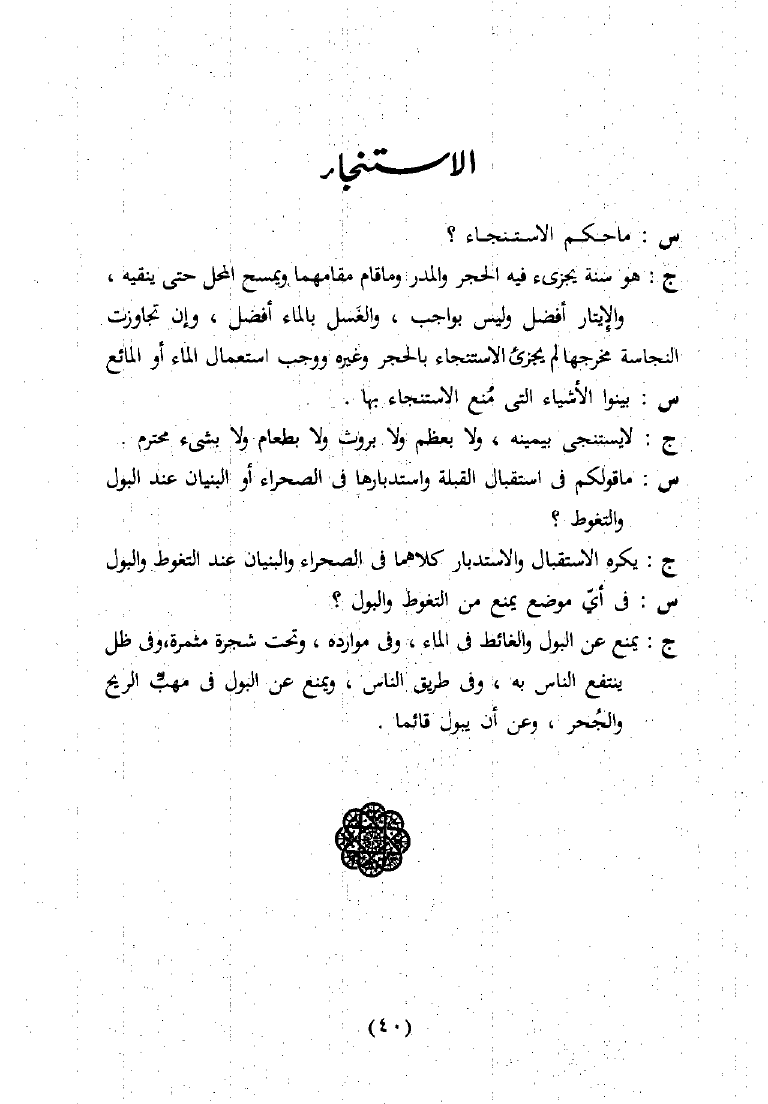 الاستنجاء
س : ماحكم الاستنجاء ؟
ج : هو سنة يجزىء فيه الحجر والمدر وماقام مقامهما ويمسح المحل حتى ينقيه ،
والإيتار أفضل وليس بواجب ، والغَسل بالماء أفضل ، وإن تجاوزت
النجاسة مخرجها لم يجزئ الاستنجاء بالحجر وغيره ووجب استعمال الماء أو المائع
س : بينوا الأشياء التى مُنع الاستنجاء بها .
ج : لايستنجى بيمينه ، ولا بعظم ولا بروث ولا بطعام ولا بشىء محترم .
س : ماقولكم فى استقبال القبلة واستدبارها فى الصحراء أو البنيان عند البول
والتغوط ؟
ج : يكره الاستقبال والاستدبار كلاهما فى الصحراء والبنيان عند التغوط والبول
س : فى أيّ موضع يمنع من التغوط والبول ؟
ج : يمنع عن البول والغائط فى الماء ، وفى موارده ، وتحت شجرة مثمرة،وفى ظل
ينتفع الناس به ، وفى طريق الناس ، ويمنع عن البول فى مهبّ الريح
والجُحر ، وعن أن يبول قائما .
(٤٠)